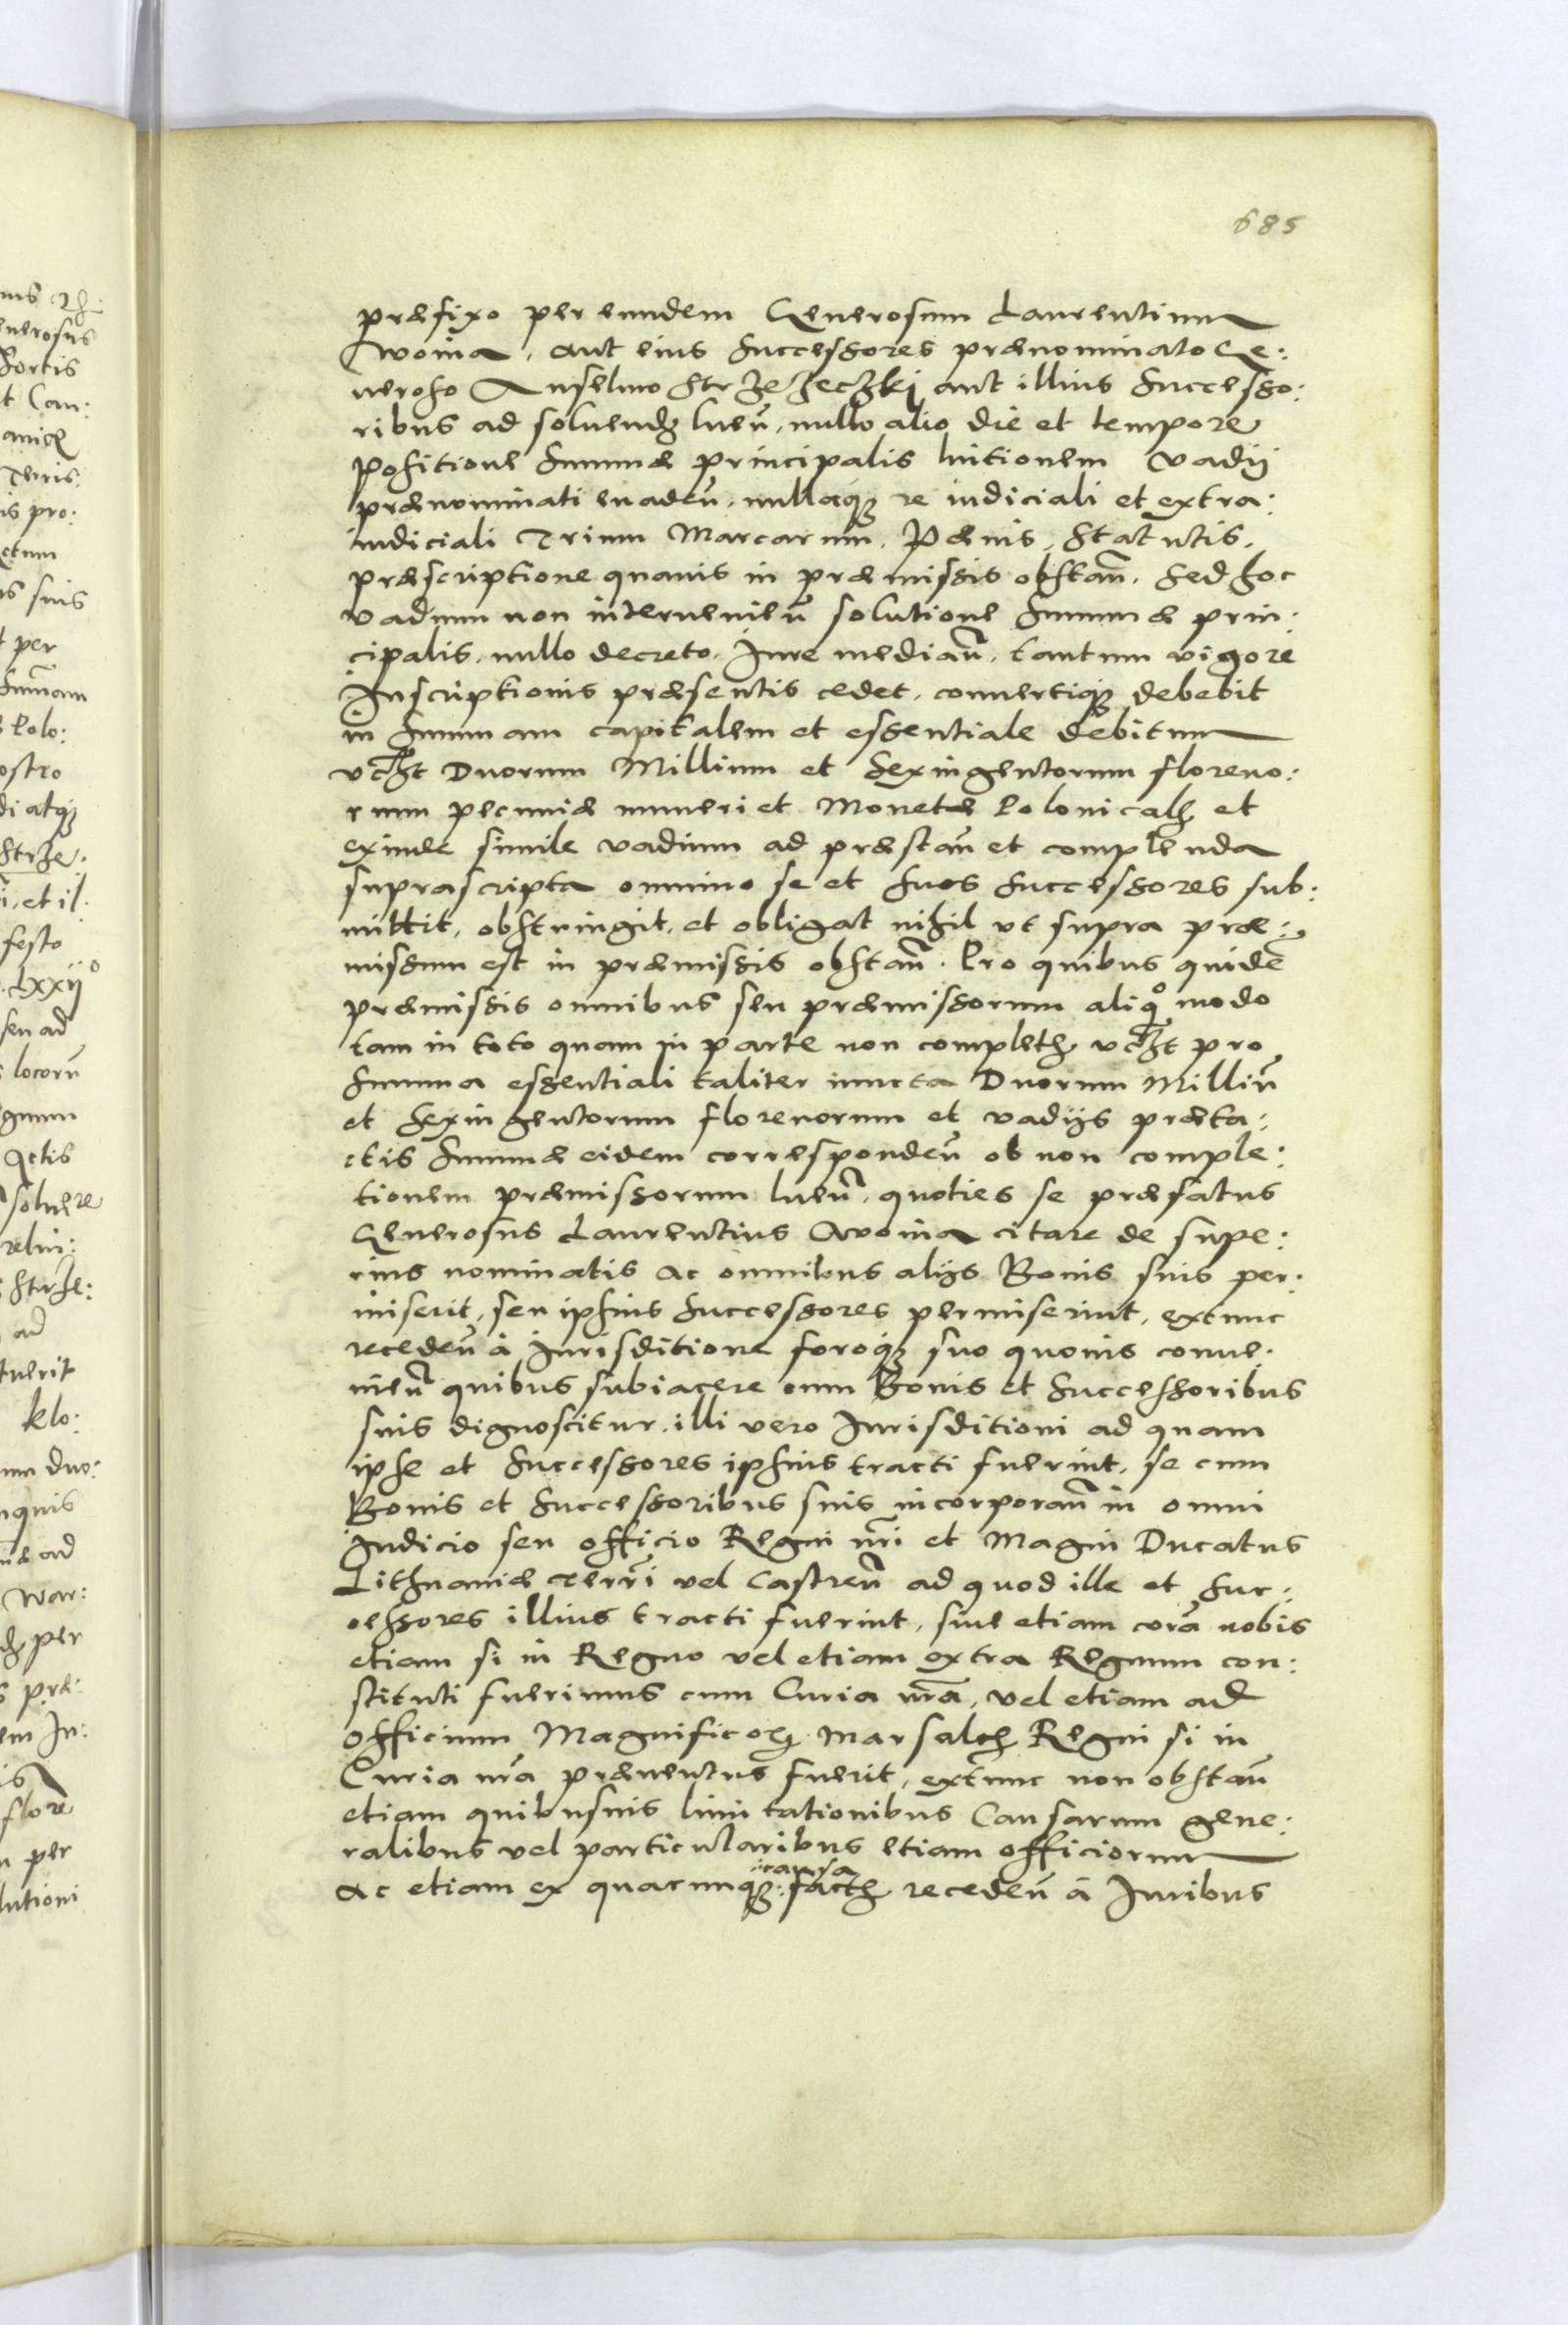 685
præfixo per eundem Generosum Laurentium
Woina, aut eius Successores prænominato Ge:
neroso Anselmo Strzezeczki aut illius Successo:
ribus ad soluendꝫ luen̄, nullo alio die et tempore
positione Summæ principalis luitionem Vadij
prænominati euaden̄, nullaqꝫ re iudiciali et extra:
iudiciali Trium Marcarum, Pænis, Statutis,
præscriptione quauis in præmissis obstan̄. Sed hoc
vadium non interuenien̄ solutione Summæ prin:
cipalis, nullo decreto, Jure median̄, tantum vigore
Inscriptionis præsentis cedet, conuertiqꝫ debebit
in Summam capitalem et essentiale debitum
vcꝫt Duorum Millium et Sexingentorum floreno:
rum pecuniæ numeri et Monetæ Polonicalꝫ et
exinde simile vadium ad præstan̄ et complenda
suprascripta omnino se et suos successores sub:
mittit, obstringit, et obligat nihil vt supra præ:
missum est in præmissis obstan̄. Pro quibus quidē
præmissis omnibus seu præmissorum aliqº modo
tam in toto quam in parte non completꝫ vcꝫt pro
Summa essentiali taliter iuncta Duorum Milliū
et Sexingentorum florenorum et vadijs præta:
ctis Summæ eidem corresponden̄ ob non comple:
tionem præmissorum luen̄, quoties se præfatus
Generosus Laurentius Woina citare de supe:
rius nominatis ac omnibus alijs Bonis suis per:
miserit, seu ipsius Successores permiserint, extunc
receden̄ à Jurisditione foroqꝫ suo quouis conue:
nien̄ quibus subiacere cum Bonis et Successoribus
suis dignoscitur, illi vero Jurisditioni ad quam
ipse et Successores ipsius tracti fuerint, se cum
Bonis et Successoribus suis incorporan̄ in omni
Judicio seu officio Regni nr̄i et Magni Ducatus
Lithuaniæ Terrī vel Castren̄ ad quod ille et Suc:
cessores illius tracti fuerint, siue etiam corā nobis
etiam si in Regno vel etiam extra Regnum con:
stituti fuerimus cum Curia nr̄a, vel etiam ad
officium Magnificoꝝ Marsalcꝫ Regni si in
Curia nr̄a præuentus fuerit, extunc non obstan̄
etiam quibusuis limitationibus Causarum gene:
ralibus vel particularibus etiam officiorum
causa
ac etiam ex quacunqꝫ factꝫ receden̄ à Juribus